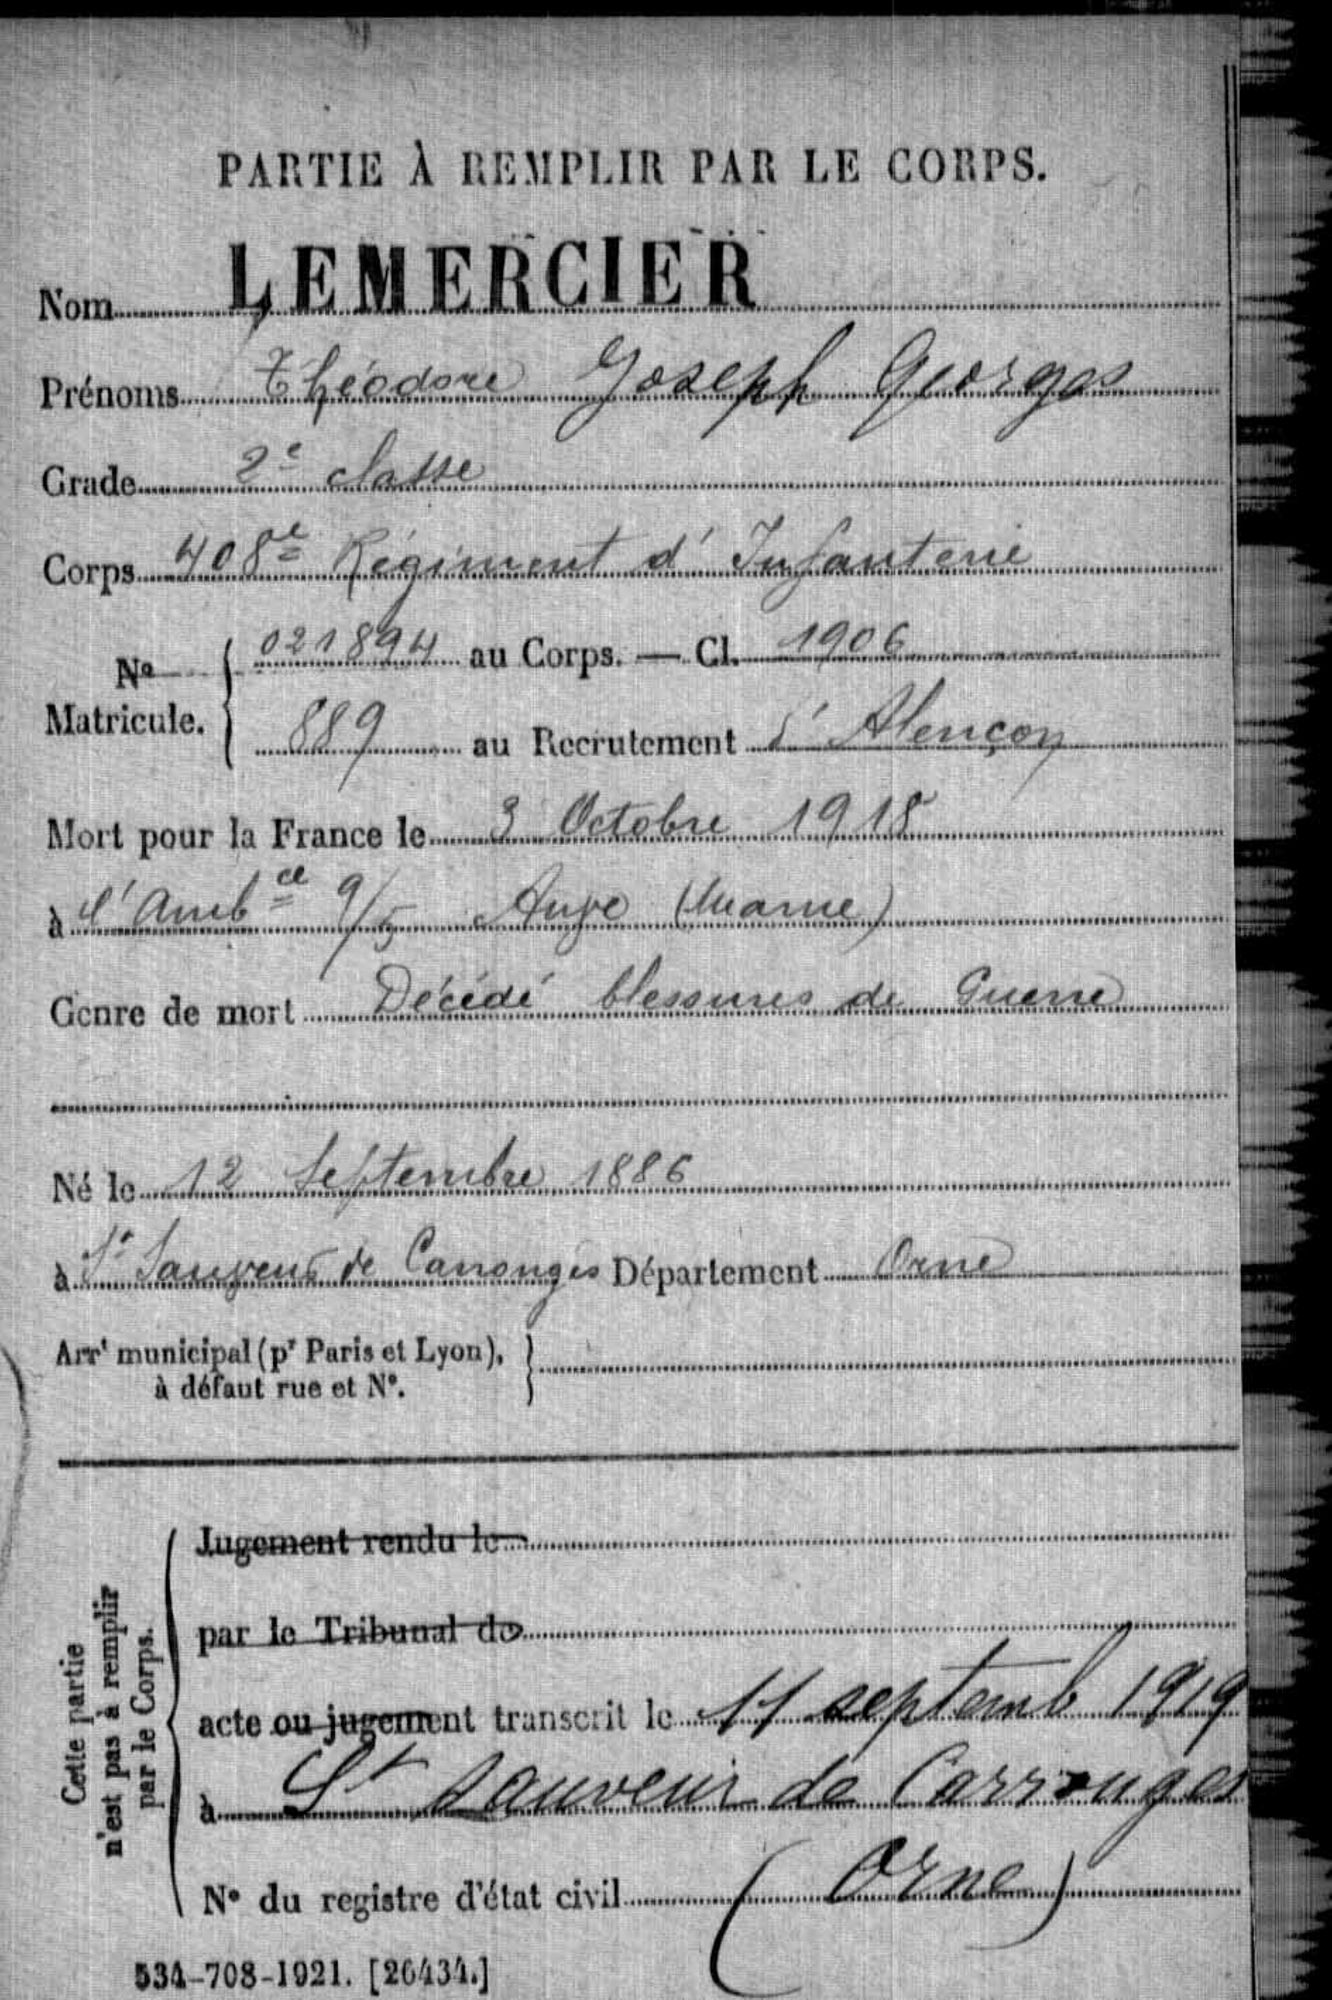 PARTIE À REMPLIR PAR LE CORPS.
Nom LEMERCIER
Prénoms Théodore Joseph Georges
Grade 2e classe
Corps 408e Régiment d'Infanterie
No Matricule. 021894 au Corps. — Cl. 1906
889 au Recrutement d'Alençon
Mort pour la France le 3 Octobre 1918
à l'Ambce 9/5 Auve (Marne)
Genre de mort Décédé blessures de Guerre
Né le 12 Septembre 1886
à St Sauveur de Carronges Département Orne
Arrt municipal (pr Paris et Lyon),
à défaut rue et N°.
Cette partie
n'est pas à remplir
par le Corps.
Jugement rendu le
par le Tribunal de
acte ou jugement transcrit le 11 septemb 1919
à St Sauveur de Carrouges
N° du registre d'état civil (Orne)
534-708-1921. [26434.]